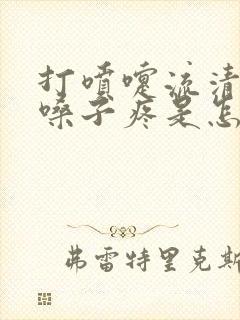 打喷嚏流清
嗓子疼是怎
弗雷特里克斯